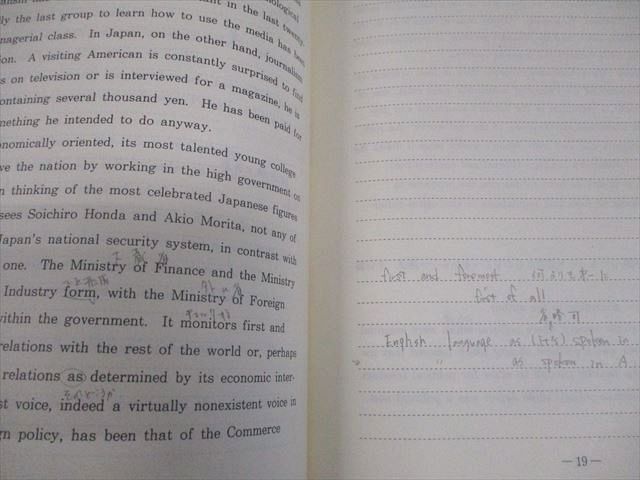 t in the last twenty-
ly the last group to learn how to use the media has been
nagerial class. In Japan, on the other hand, journalism
ion. A visiting American is constantly surprised to find
s on television or is interviewed for a magazine, he is
ontaining several thousand yen. He has been paid for
mething he intended to do anyway.
onomically oriented, its most talented young college
ve the nation by working in the high government
n thinking of the most celebrated Japanese figures
sees Soichiro Honda and Akio Morita, not any of
Japan's national security system, in contrast with
one. The Ministry of Finance and the Ministry
Industry form, with the Ministry of Foreign
within the government. It monitors first and
relations with the rest of the world or, perhaps
relations as determined by its economic inter-
st voice, indeed a virtually nonexistent voice in
gn policy, has been that of the Commerce
first and foremost 何よりもまず
first of all
English language as (it is) spoken in
〃 as spoken in A
—19—